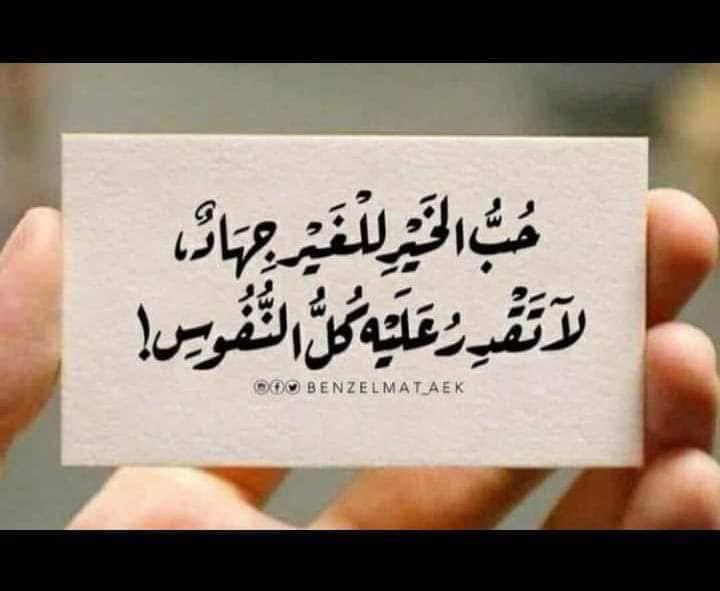 حُبُّ الخَيْرِ لِلْغَيْرِ جِهَادٌ،
لَا تَقْدِرُ عَلَيْهِ كُلُّ النُّفُوسِ!
BENZELMAT_AEK